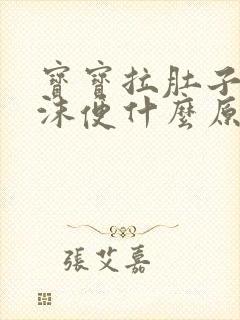 寶寶拉肚子
沫便什麼原
張艾嘉